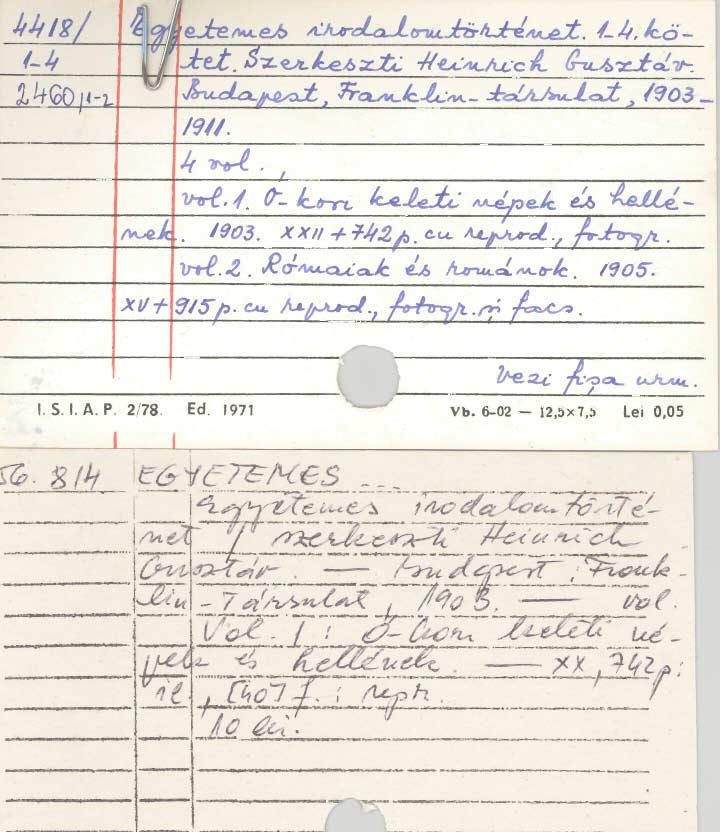 4418/ Egyetemes irodalomtörténet. 1-4. kö-
1-4 tet. Szerkeszti Heinrich Gusztáv.
2460/1-2 Budapest, Franklin-társulat, 1903-
1911.
4 vol.
vol. 1. Ó-kori keleti népek és hellé-
nek. 1903. XXII + 742 p. cu reprod., fotogr.
vol. 2. Rómaiak és románok. 1905.
XV + 915 p. cu reprod., fotogr. și facs.
Vezi fișa urm.
I. S. I. A. P. 2/78. Ed. 1971 Vb. 6-02 — 12,5×7,5 Lei 0,05
56. 814 EGYETEMES ...
Egyetemes irodalomtörté-
net / szerkeszti Heinrich
Gusztáv. — Budapest : Frank-
lin-Társulat, 1903. — vol.
Vol. 1 : Ó-kori keleti né-
pek és hellének. — XX, 742 p :
il, [40] f. : repr.
10 lei.